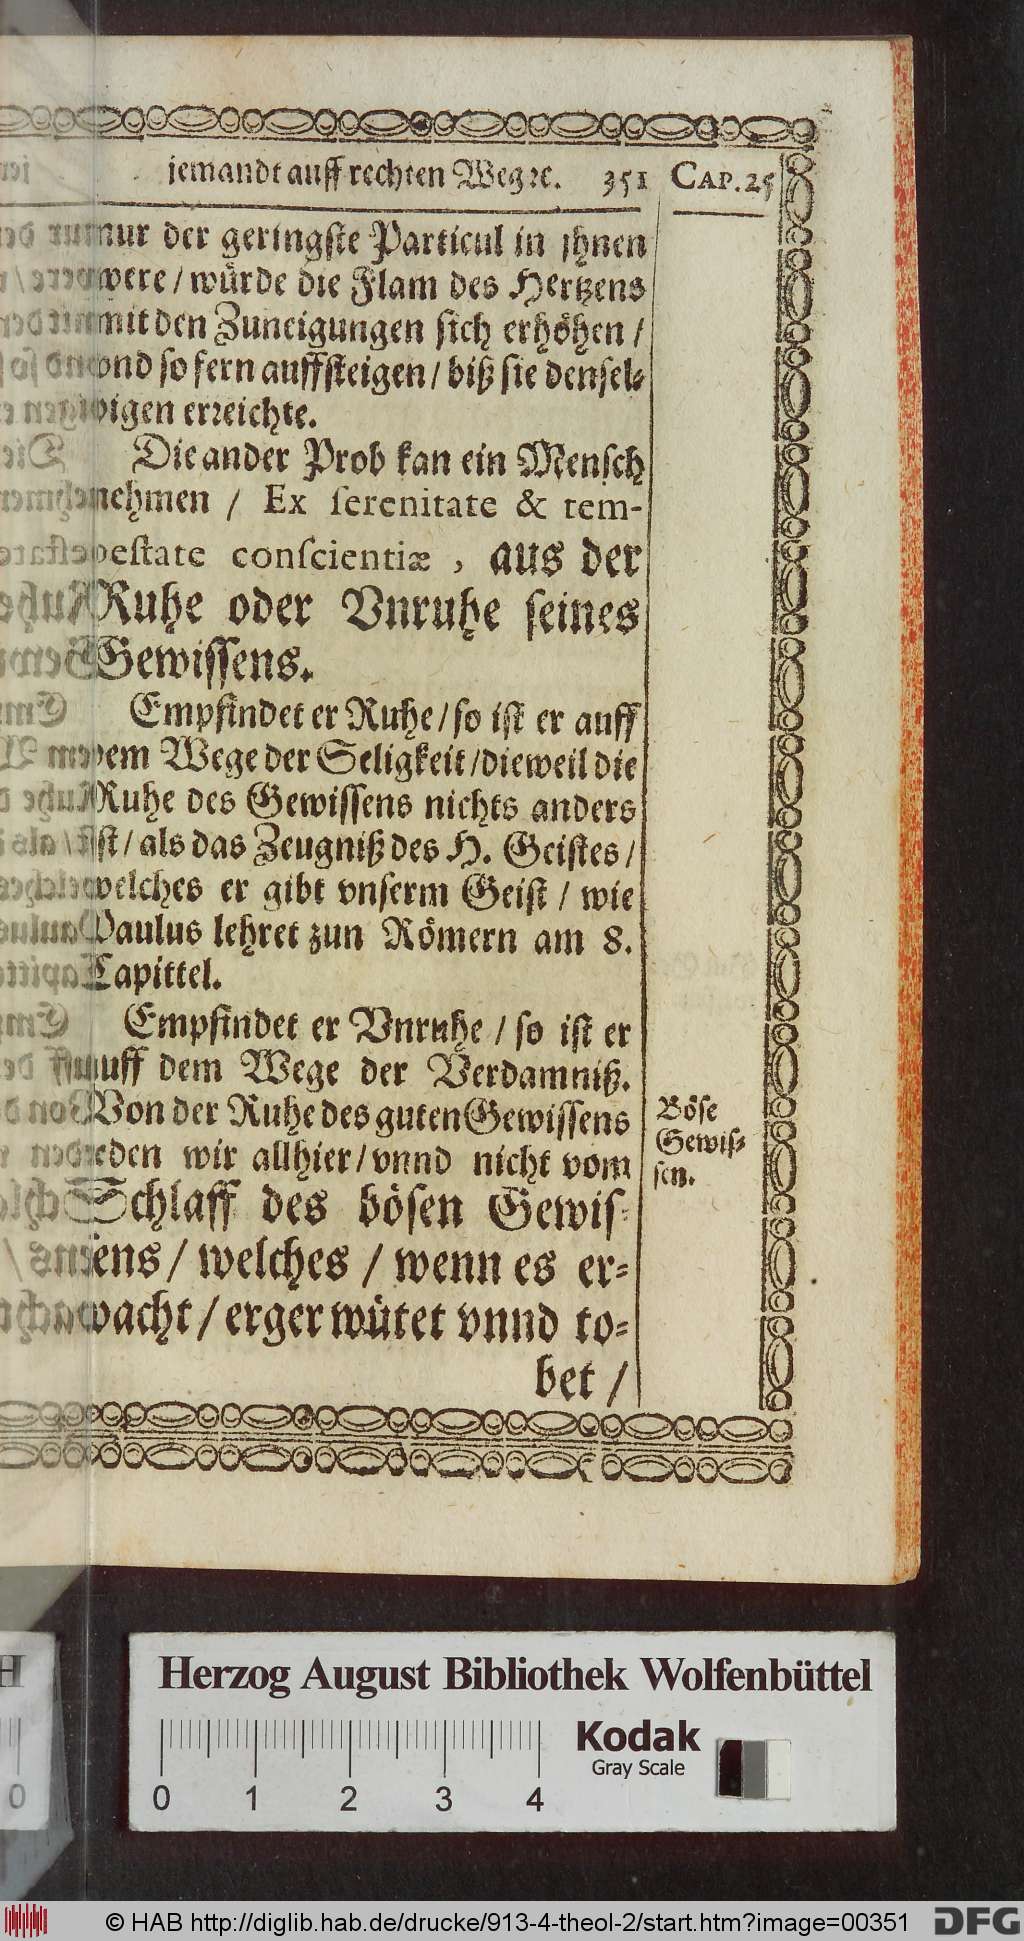 jemandt auff rechten Weg ꝛc. 351 CAP. 25
nur der geringste Particul in jhnen
were / würde die Flam des Hertzens
mit den Zuneigungen sich erhöhen /
vnd so fern auffsteigen / biß sie densel-
bigen erreichte.
Die ander Prob kan ein Mensch
nehmen / Ex serenitate & tem-
pestate conscientiæ, aus der
Ruhe oder Vnruhe seines
Gewissens.
Empfindet er Ruhe / so ist er auff
dem Wege der Seligkeit / dieweil die
Ruhe des Gewissens nichts anders
ist / als das Zeugniß des H. Geistes /
welches er gibt vnserm Geist / wie
Paulus lehret zun Römern am 8.
Capittel.
Empfindet er Vnruhe / so ist er
auff dem Wege der Verdamniß.
Von der Ruhe des guten Gewissens
reden wir allhier / vnnd nicht vom
Schlaff des bösen Gewis-
sens / welches / wenn es er-
wacht / erger wütet vnnd to-
bet /
Böse
Gewis-
sen.
Herzog August Bibliothek Wolfenbüttel
Kodak
Gray Scale
0 1 2 3 4
© HAB http://diglib.hab.de/drucke/913-4-theol-2/start.htm?image=00351
DFG